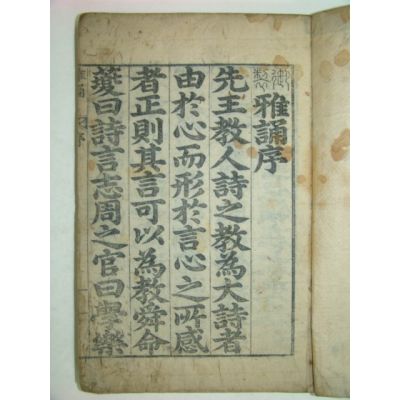 御製
雅誦序
先王教人詩之教為大詩者
由於心而形於言心之所感
者正則其言可以為教舜命
夔曰詩言志周之官曰學樂